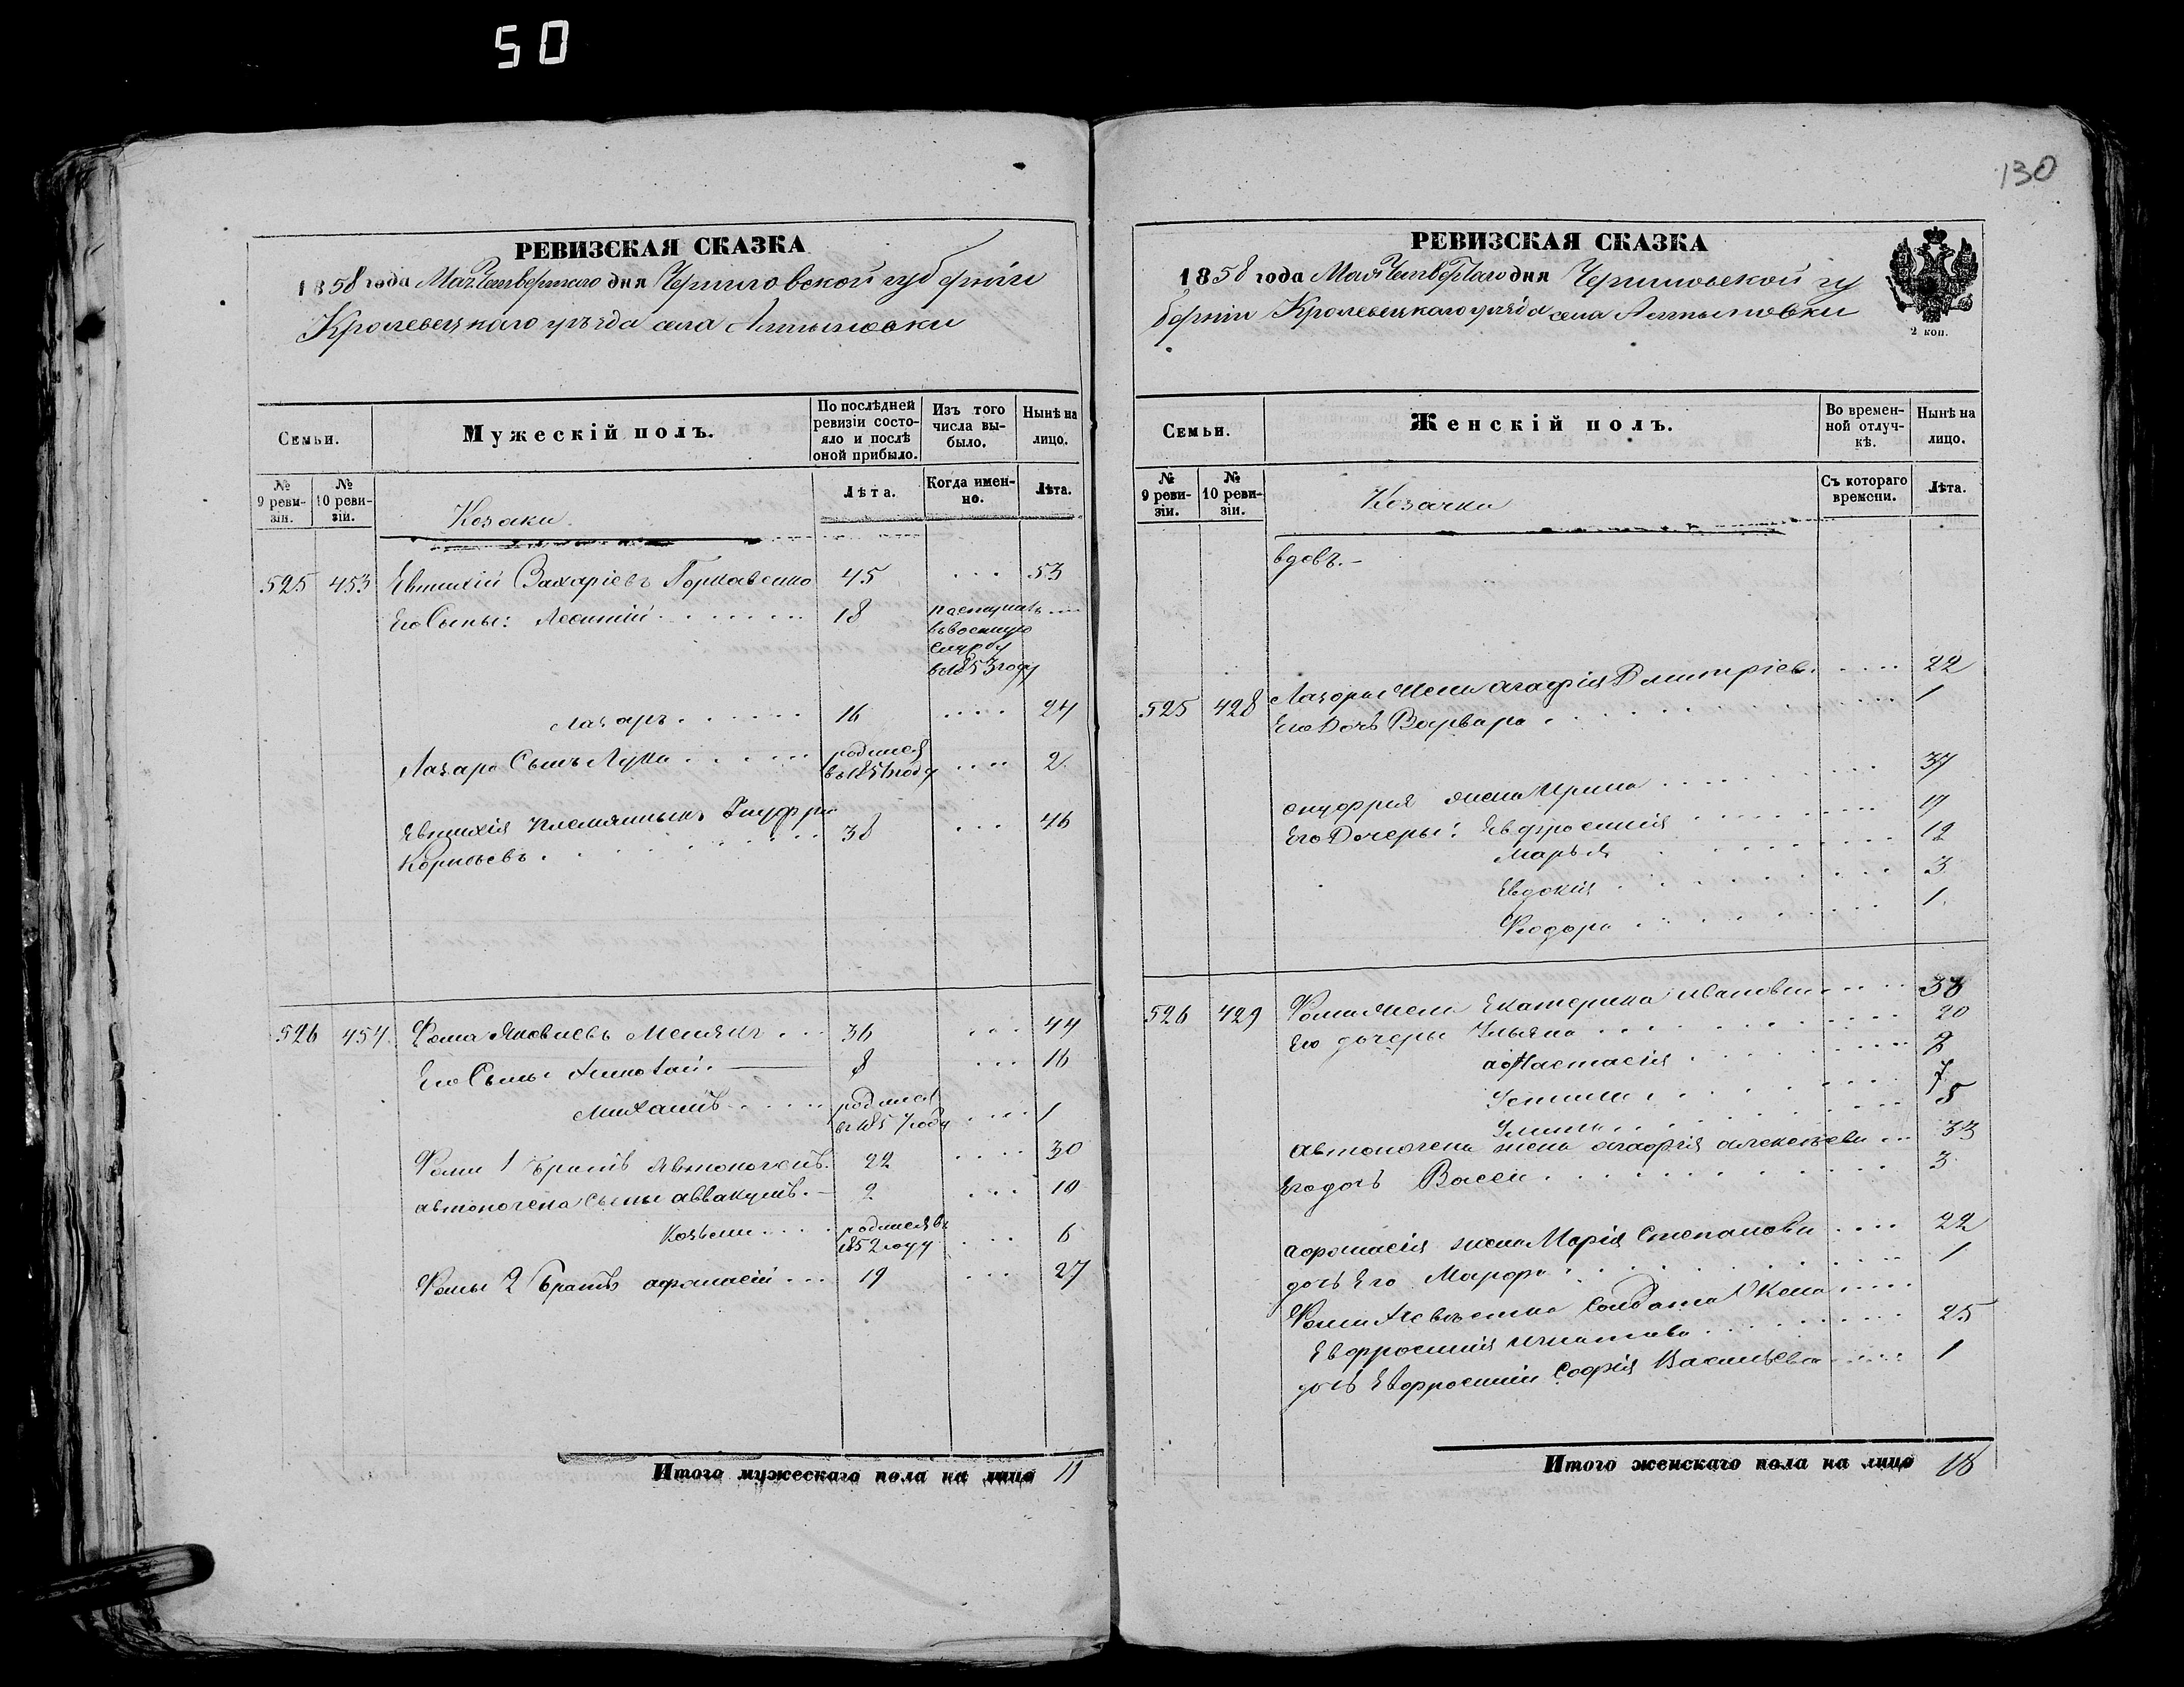 50
130
РЕВИЗСКАЯ СКАЗКА
1858 года Мая Четвертаго дня Черниговской губерніи
Кролевецкаго уѣзда села Алтыновки
Семьи.
Мужескій полъ.
По послѣдней ревизіи состояло и послѣ оной прибыло.
Изъ того числа выбыло.
Нынѣ на лицо.
№ 9 ревизіи.
№ 10 ревизіи.
Козаки
Лѣта.
Когда именно.
Лѣта.
525 453 Евтихій Захаріевъ 45 53
Его Сыны: Леонтій 18 поступилъ
въ военную
службу
в 1853 году
Лазарь 16 24
Лазаря Сынъ Лука родился
в 1856 году 2
Евтихія племянникъ Онуфрій
Корніевъ 38 46
526 454 Фома Яковлевъ 36 44
Его Сыны 8 16
Михаилъ родился
в 1857 году 1
Фомы 1 братъ Автоногенъ 22 30
автоногена Сыны аввакумъ 2 10
Козьма родился въ
1852 году 6
Фомы 2 братъ афонасій 19 27
Итого мужескаго пола на лицо 11
РЕВИЗСКАЯ СКАЗКА
1858 года Мая Четвертаго дня Черниговской гу
берніи Кролевецкаго уѣзда села Алтыновки
2 коп.
Семьи.
Женскій полъ.
Во временной отлучкѣ.
Нынѣ на лицо.
№ 9 ревизіи.
№ 10 ревизіи.
Козачки
Съ котораго времени.
Лѣта.
вдовъ.-
525 428 Лазаря жена агафія Дмитріев. 22
Его Дочь Варвара 1
онуфрія жена Ирина 37
Его Дочеры: Евфросинія 19
Марья 12
Евдокія 3
Феодора 1
526 429 Фомы жена Екатерина Иванови 38
Его дочеры Ульяна 20
анастасія
Устинья 7
5
автоногена жена агафія алексѣеви 33
Его дочь Васса 3
афонасія жена Марія Степанови 22
дочь Его Марфа 1
Фомы Невѣстка Солдатка Жена
Евфросинія игнатова 25
дочь Евфросиніи Софія Васильева 1
Итого женскаго пола на лицо 18